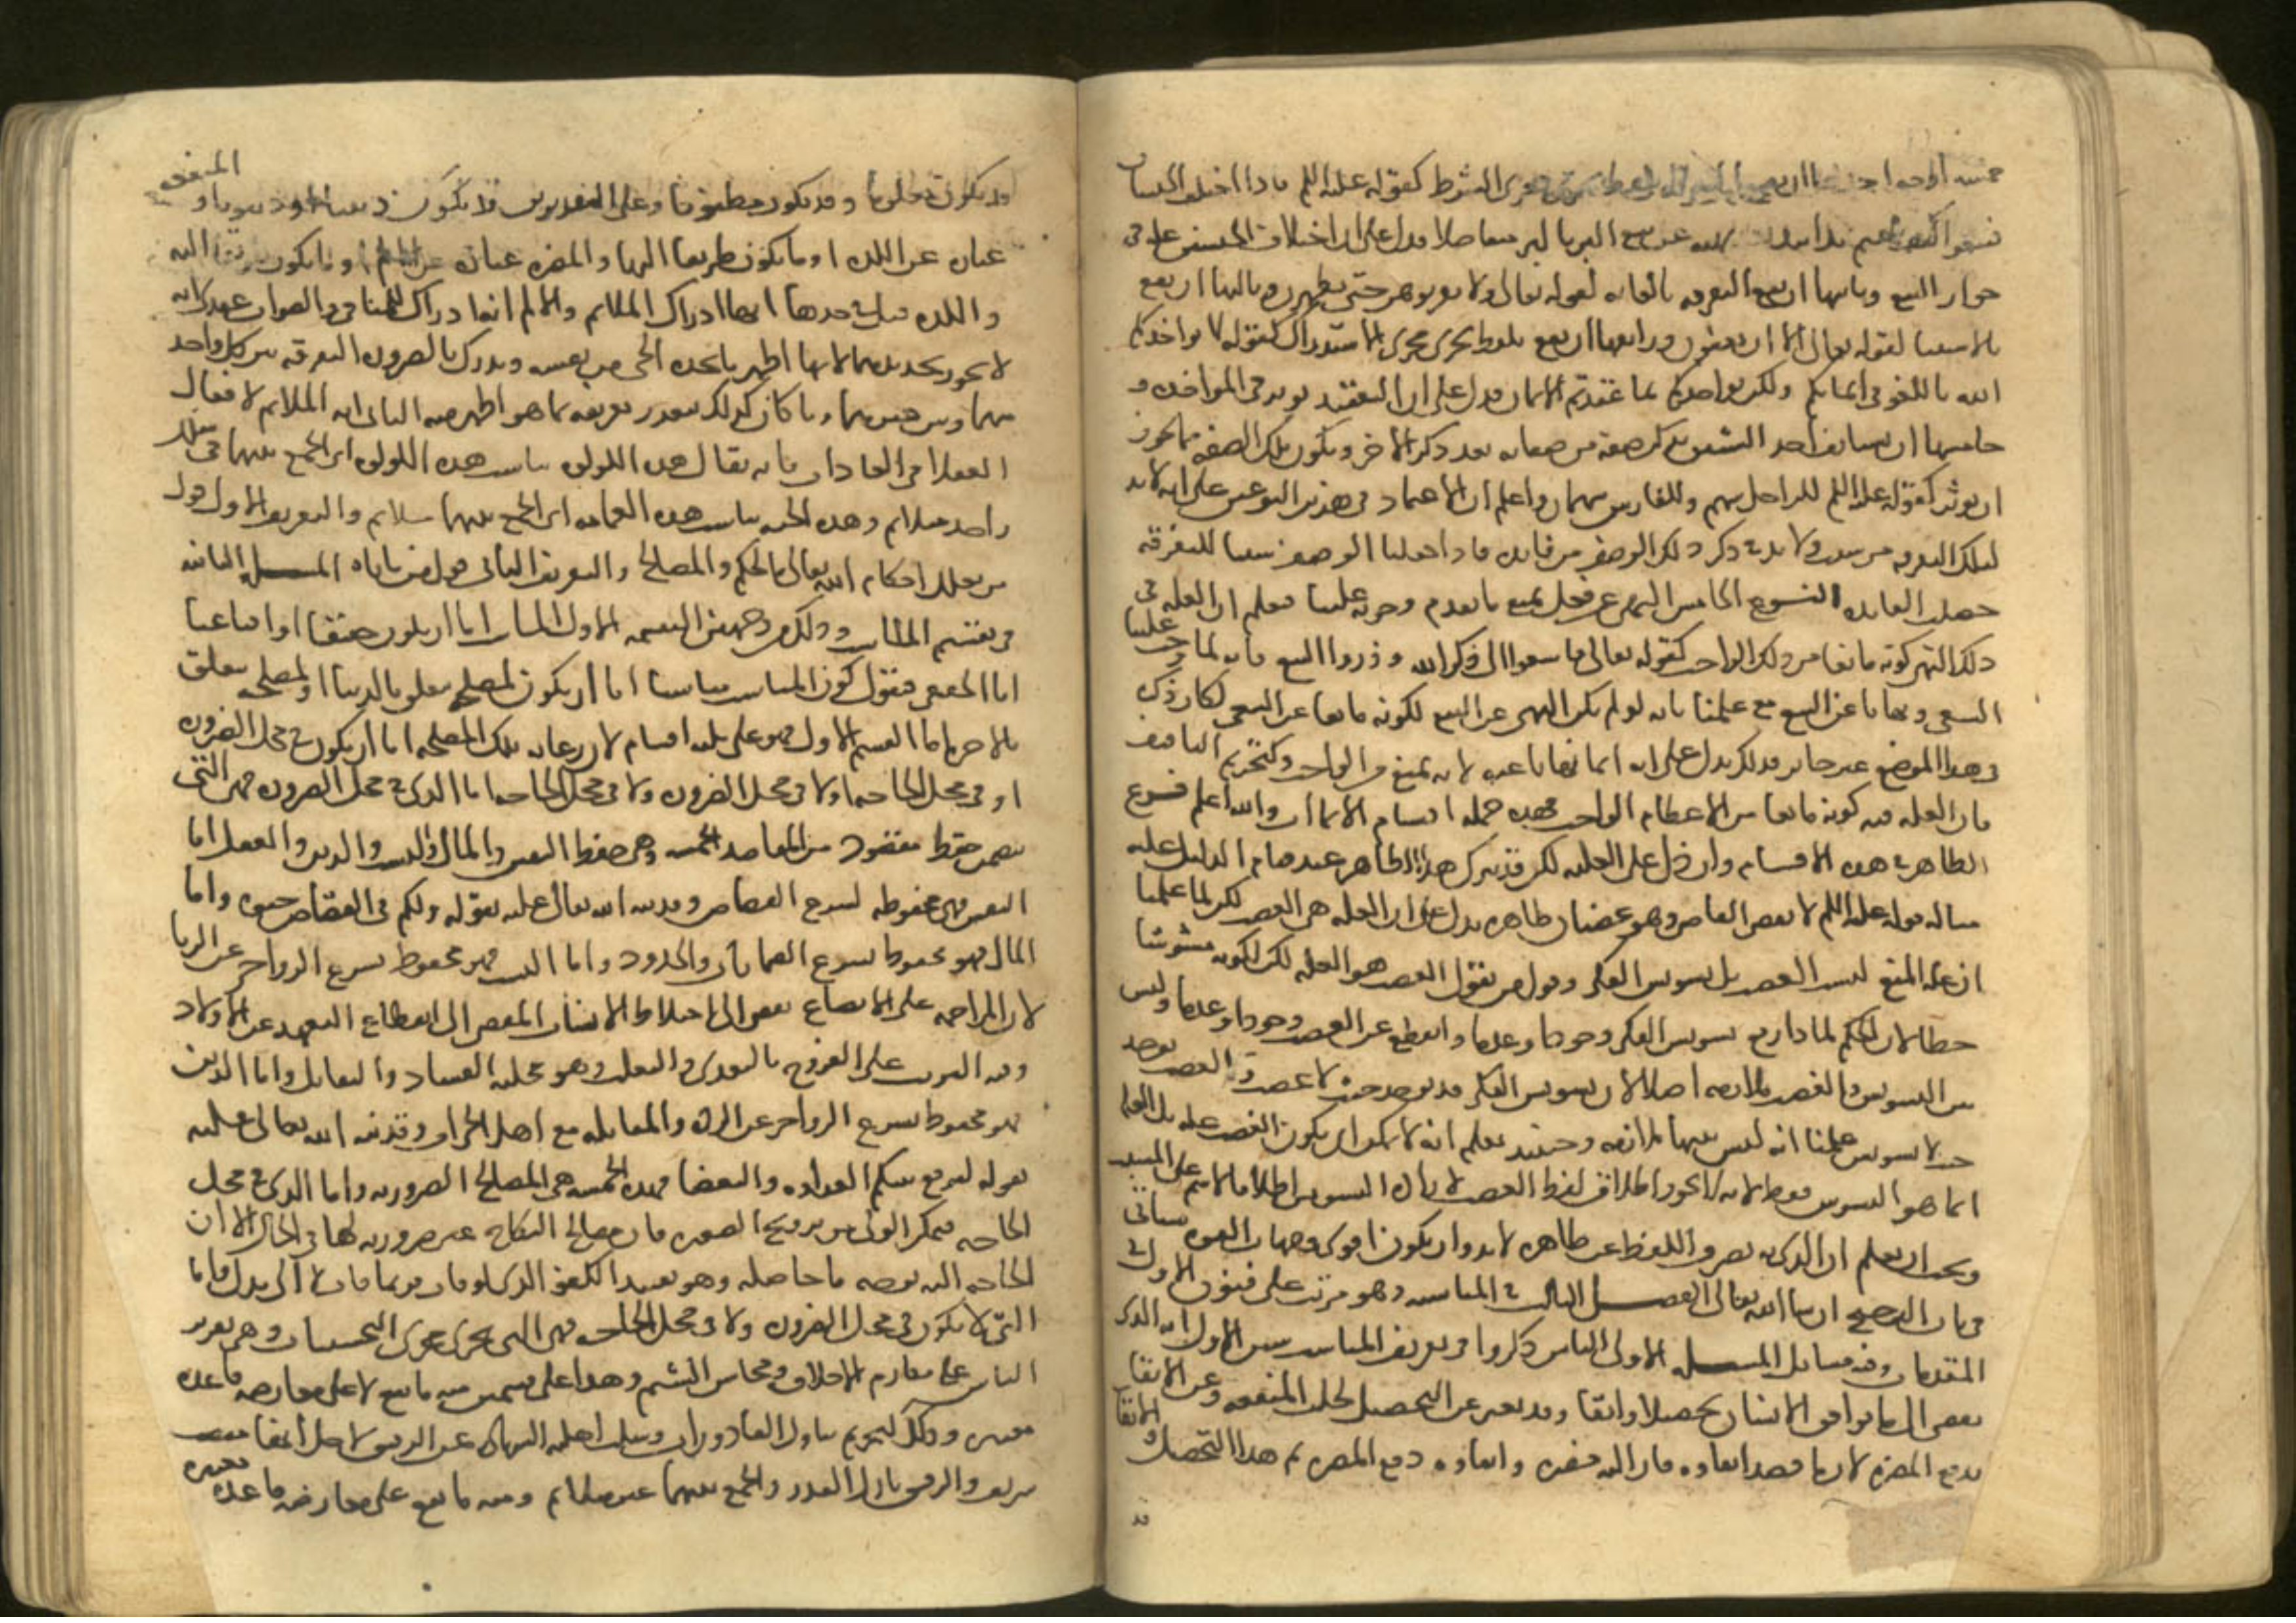 خمسة اوجه احدها ان يقع بلفظ يجري مجرى الشرط كقوله عليه السلم فاذا اختلف الجنسان
فبيعوا كيف شئتم يدا بيد بعد نهيه عن بيع البر بالبر متفاضلا فدل على ان اختلاف الجنسين علة في
جواز البيع وثانيها ان يقع التفرقة بالغاية لقوله تعالى ولا تقربوهن حتى يطهرن وثالثها ان يقع
بالاستثنا لقوله تعالى الا ان يعفون ورابعها ان يقع بلفظ يجري مجرى الاستدراك كقوله لا يواخذكم
الله باللغو في ايمانكم ولكن يواخذكم بما عقدتم الايمان فدل على ان التعقيد يوثر في المواخذه و
خامسها ان يستانف احد الشيئين بذكر صفة من صفاته بعد ذكر الاخر ويكون تلك الصفه مما يجوز
ان يوثر كقوله عليه السلم للراجل سهم وللفارس سهمان واعلم ان الاعتماد في هذين النوعين على انه لا بد
لتلك التفرقه من سبب ولا بد في ذكر ذلك الوصف من فايده فاذا جعلنا الوصف سببا للتفرقة
حصلت الفايده النوع الخامس النهي عن فعل يمنع ما تقدم وجوبه علينا فيعلم ان العله في
ذلك النهي كونه مانعا من ذلك الواجب كقوله تعالى فاسعوا الى ذكر الله وذروا البيع فانه لما اوجب علينا
السعي ونهانا عن البيع مع علمنا بانه لو لم يكن النهي عن البيع لكونه مانعا عن السعي لكان ذكره
في هذا الموضع غير جايز فدلك يدل على انه انما نهانا عنه لانه يمنع من الواجب وكتحريم التافيف
فان العله فيه كونه مانعا من الاعظام الواجب فهذه جملة اقسام الايماات والله اعلم فرع
الظاهر في هذه الاقسام وان دل على العليه لكن قد يترك هذا الظاهر عند قيام الدليل عليه
مثاله قوله عليه السلم لا يقضي القاضي وهو غضبان ظاهره يدل على ان العله هي الغضب لكن لما علمنا
ان علة المنع ليست الغضب بل تشويش الفكر وقول من يقول الغضب هو العله لكن لكونه مشوشا
خطا لان الحكم لما دار مع تشويش الفكر وجودا وعدما وانقطع عن الغضب وجودا وعدما وليس
بين التشويش والغضب ملازمه اصلا لان تشويش الفكر قد يوجد حيث لا غضب والغضب يوجد
حيث لا تشويش علمنا انه ليس بينهما ملازمه وحينئذ نعلم انه لا يمكن ان يكون الغضب عله بل العله
انما هو التشويش فقط الا انه يجوز اطلاق لفظ الغضب لارادة التشويش اطلاقا لاسم السبب على المسبب
ويجب ان يعلم ان الذي به يصرف اللفظ عن ظاهره لا بد وان يكون اقوى وجهات القوه سياتي
في باب الترجيح ان شا الله تعالى الفصل الثاني في المناسبه وهو مرتب على فنون الاول في
المقدمات وفيه مسايل المسله الاولى الناس ذكروا في تعريف المناسب شيين الاول انه الذي
يفضي الى ما يوافق الانسان تحصيلا وابقا وقد يعبر عن التحصيل بجلب المنفعه وعن الابقا
بدفع المضرة لان ما قصد ابقاوه فازالته مضره وابقاوه دفع المضره ثم هذا التحصيل والابقا
قد
قد يكون معلوما وقد يكون مظنونا وعلى التقديرين قد يكون دينيا او دنيويا والمنفعه
عباره عن اللذه او ما يكون طريقا اليها والمضره عبارة عن الالم او ما يكون طريقا اليه
واللذه قيل في حدها انها ادراك الملايم والالم انه ادراك المنافي والصواب عندي انه
لا يجوز تحديدهما لانها اظهر ما يجده الحي من نفسه ويدرك بالضروره التفرقه بين كل واحد
منهما وبين غيرهما وما كان كذلك يتعذر تعريفه بما هو اظهر منه الثاني انه الملايم لافعال
العقلا في العادات فانه يقال هذه اللولوه تناسب هذه اللولوه اي الجمع بينهما في سلك
واحد ملايم وهذه الجبه تناسب هذه العمامه اي الجمع بينهما ملايم والتعريف الاول قول
من يعلل احكام الله تعالى بالحكم والمصالح والتعريف الثاني قول من ياباه المسله الثانيه
في تقسيم المناسب وذلك من وجهين التقسيم الاول المناسب اما ان يكون حقيقيا او اقناعيا
اما الحقيقي فنقول كون المناسب مناسبا اما ان يكون لمصلحه تتعلق بالدنيا او لمصلحه تتعلق
بالاخره اما القسم الاول فهو على ثلثه اقسام لان رعاية تلك المصلحه اما ان يكون في محل الضروره
او في محل الحاجه او لا في محل الضروره ولا في محل الحاجه اما الذي في محل الضروره فهي التي
تتضمن حفظ مقصود من المقاصد الخمسه وهي حفظ النفس والمال والنسب والدين والعقل اما
النفس فهي محفوظه بشرع القصاص وقد نبه الله تعالى عليه بقوله ولكم في القصاص حيوه واما
المال فهو محفوظ بشرع الضمانات والحدود واما النسب فهو محفوظ بشرع الزواجر عن الزنا
لان المزاحمه على الابضاع تفضي الى اختلاط الانساب المفضي الى انقطاع التعهد عن الاولاد
وفيه التوثب على الفروج بالتعدي والتغلب وهو مجلبة الفساد والتقاتل واما الدين
فهو محفوظ بشرع الزواجر عن الرده والمقاتله مع اهل الحراب وقد نبه الله تعالى عليه
بقوله ليوقع بينكم العداوه والبغضا فهذه الخمسه هي المصالح الضروريه واما الذي في محل
الحاجه فتمكين الولي من تزويج الصغيره فان مصالح النكاح غير ضروريه لها في الحال الا ان
الحاجه اليه بوجه ما حاصله وهو تقييد الكفو الذي لو فات فربما فات لا الى بدل واما
التي لا يكون في محل الضروره ولا في محل الحاجه فهي التي تجري مجرى التحسينات وهي تقرير
الناس على مكارم الاخلاق ومحاسن الشيم وهذا على قسمين منه ما يقع لا على معارضه قاعده
معتبره وذلك كتحريم تناول القاذورات وسلب اهلية الشهاده عن الرقيق لاجل انها منصب
شريف والرقيق نازل القدر والجمع بينهما غير ملايم ومنه ما يقع على معارضه قاعده معتبره